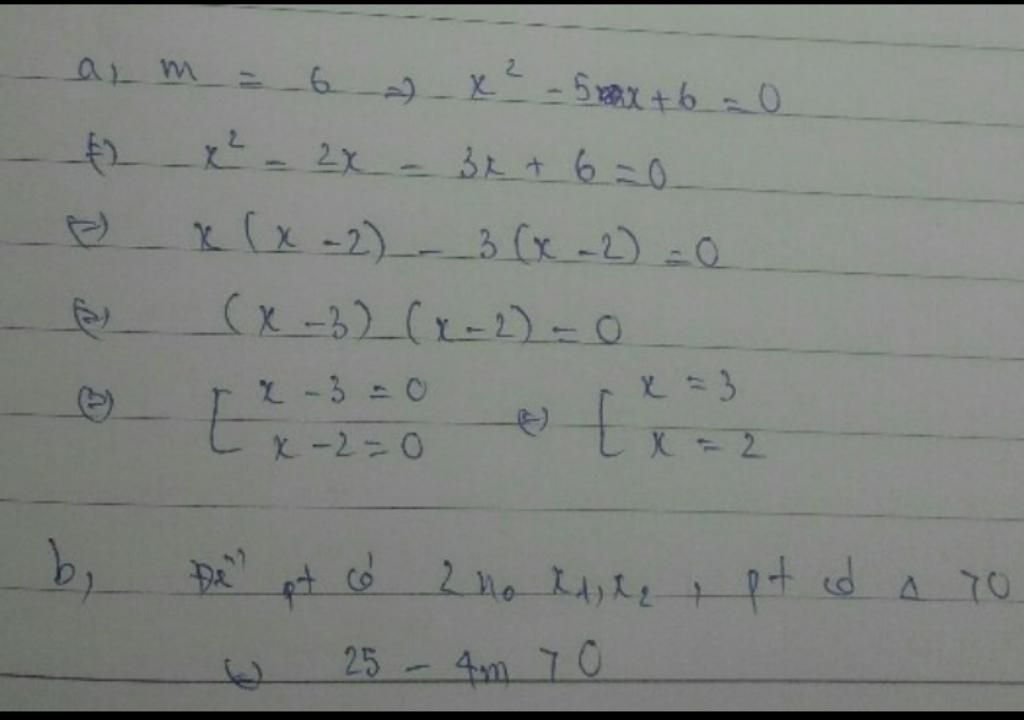 a, m = 6 => x² - 5x + 6 = 0
<=> x² - 2x - 3x + 6 = 0
<=> x (x - 2) - 3 (x - 2) = 0
<=> (x - 3) (x - 2) = 0
<=> [ x - 3 = 0 <=> [ x = 3
x - 2 = 0 x = 2
b, Để pt có 2 no x1, x2, pt có Δ > 0
<=> 25 - 4m > 0